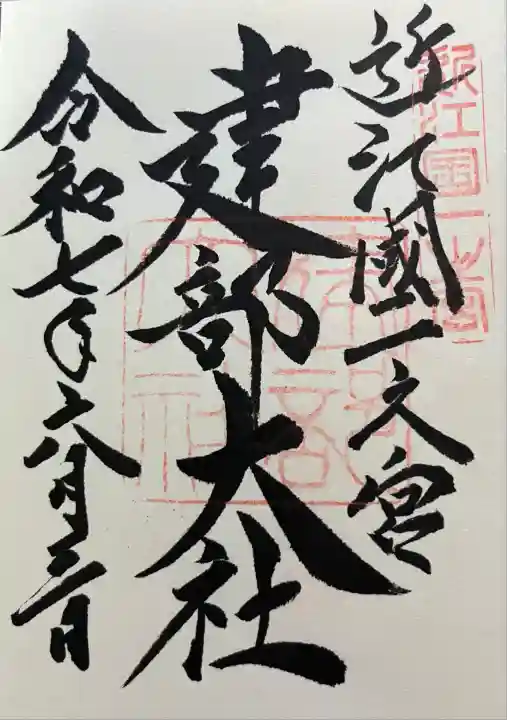 近江國一之宮
建部大社
令和七年六月三日
近江国一之宮